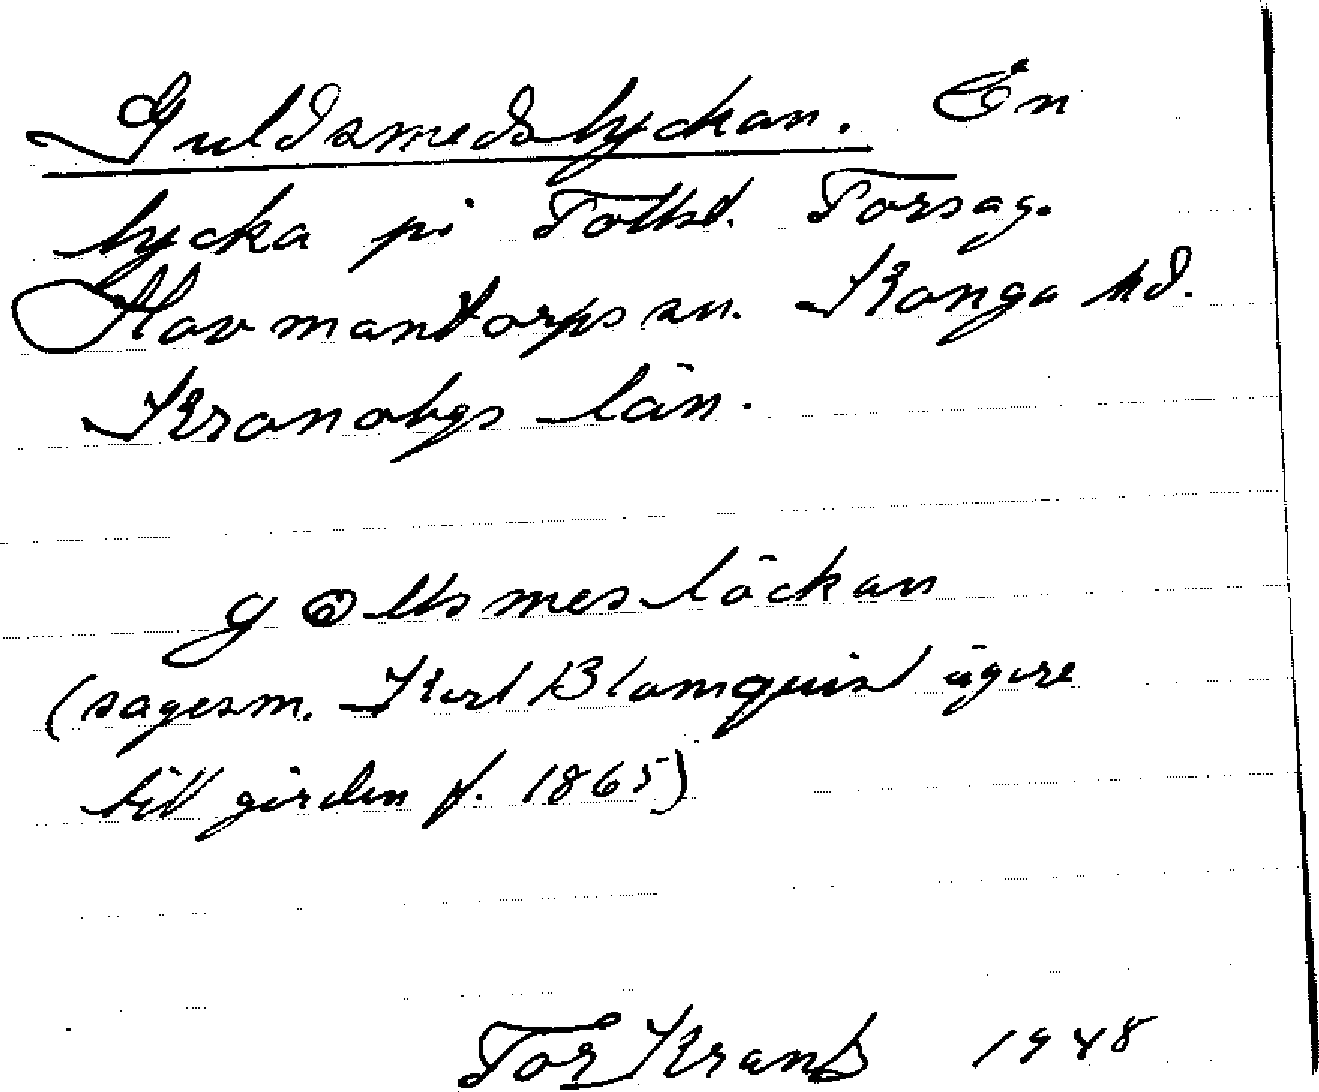 Guldsmedslyckan. En
lycka på Tollst. Torsag.
Hovmantorps sn. Konga hd.
Kronobgs län.
gollsmeslöckan
(sagesm. Karl Blomquist ägare
till gården f. 1865)
Tor Krantz 1948